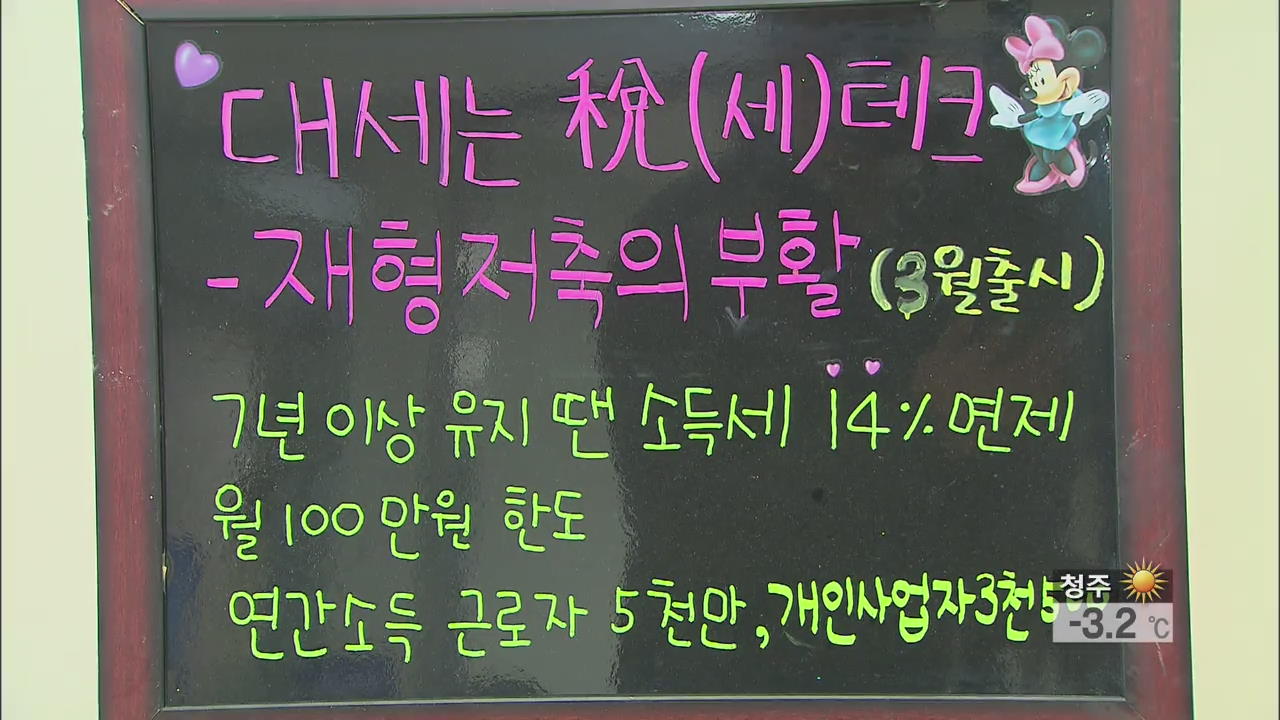 대세는 稅(세)테크
-재형저축의 부활 (3월출시)
7년 이상 유지 땐 소득세 14% 면제
월 100만원 한도
연간소득 근로자 5천만, 개인사업자3천5
청주
-3.2 ℃